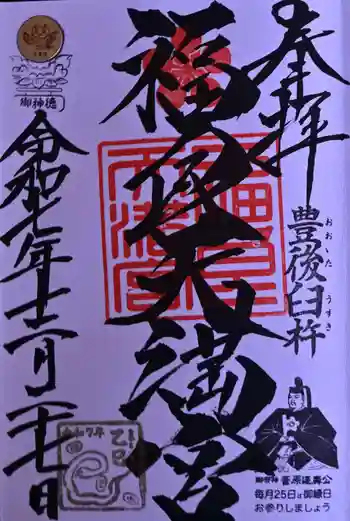 奉拝
豊後臼杵
おおいた
うすき
福良天満宮
御祭神 菅原道真公
毎月25日は御縁日
お参りしましょう
御神徳
令和七年十二月二十七日
令和7年
乙巳